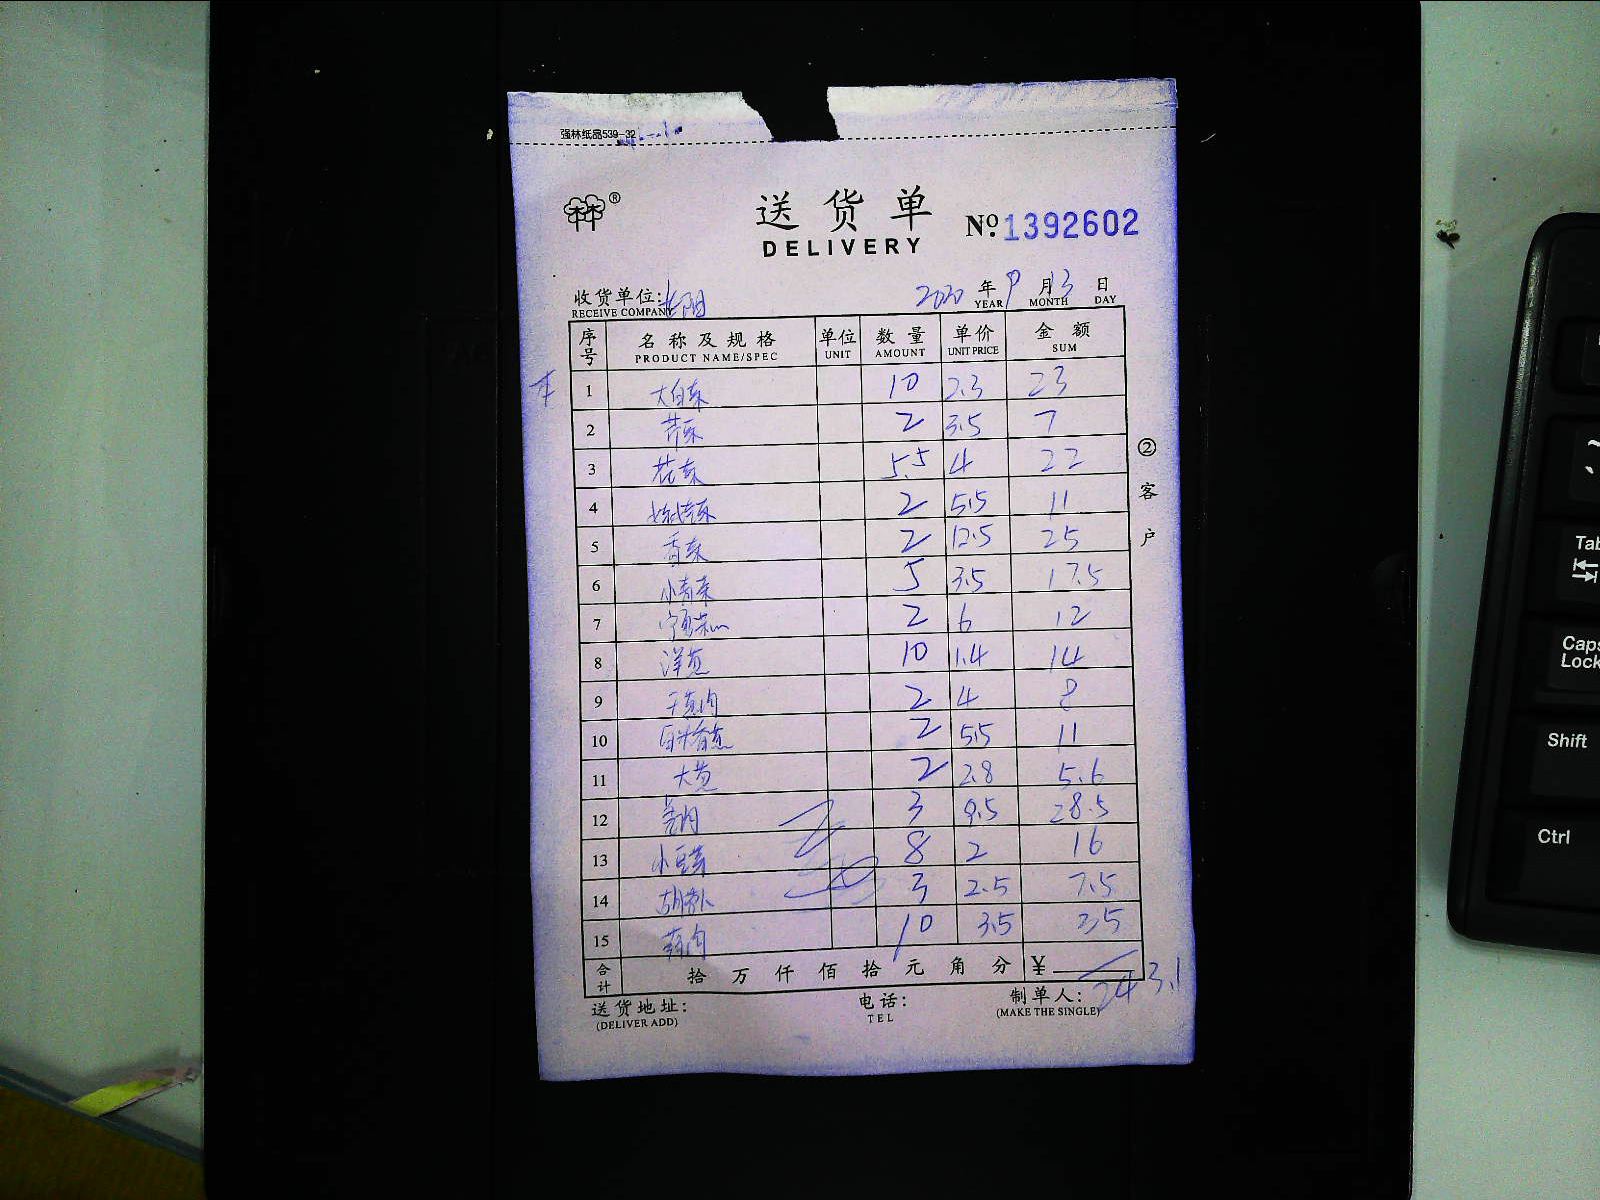 强林纸品539-32
®
送货单
DELIVERY
No. 1392602
收货单位: 2020 年 9 月 13 日
RECEIVE COMPANY YEAR MONTH DAY
序号 名称及规格 单位 数量 单价 金额
PRODUCT NAME/SPEC UNIT AMOUNT UNIT PRICE SUM
1 大白菜 10 2.3 23
2 芹菜 2 3.5 7
3 花菜 5.5 4 22
4 2 5.5 11
5 香菜 2 12.5 25
6 小青菜 5 3.5 17.5
7 2 6 12
8 洋葱 10 1.4 14
9 2 4 8
10 2 5.5 11
11 大葱 2 2.8 5.6
12 3 9.5 28.5
13 小豆芽 8 2 16
14 3 2.5 7.5
15 10 3.5 35
合计 拾 万 仟 佰 拾 元 角 分 ¥ 243.1
送货地址: 电话: 制单人:
(DELIVER ADD) TEL (MAKE THE SINGLE)
② 客户
Tab
Caps Lock
Shift
Ctrl